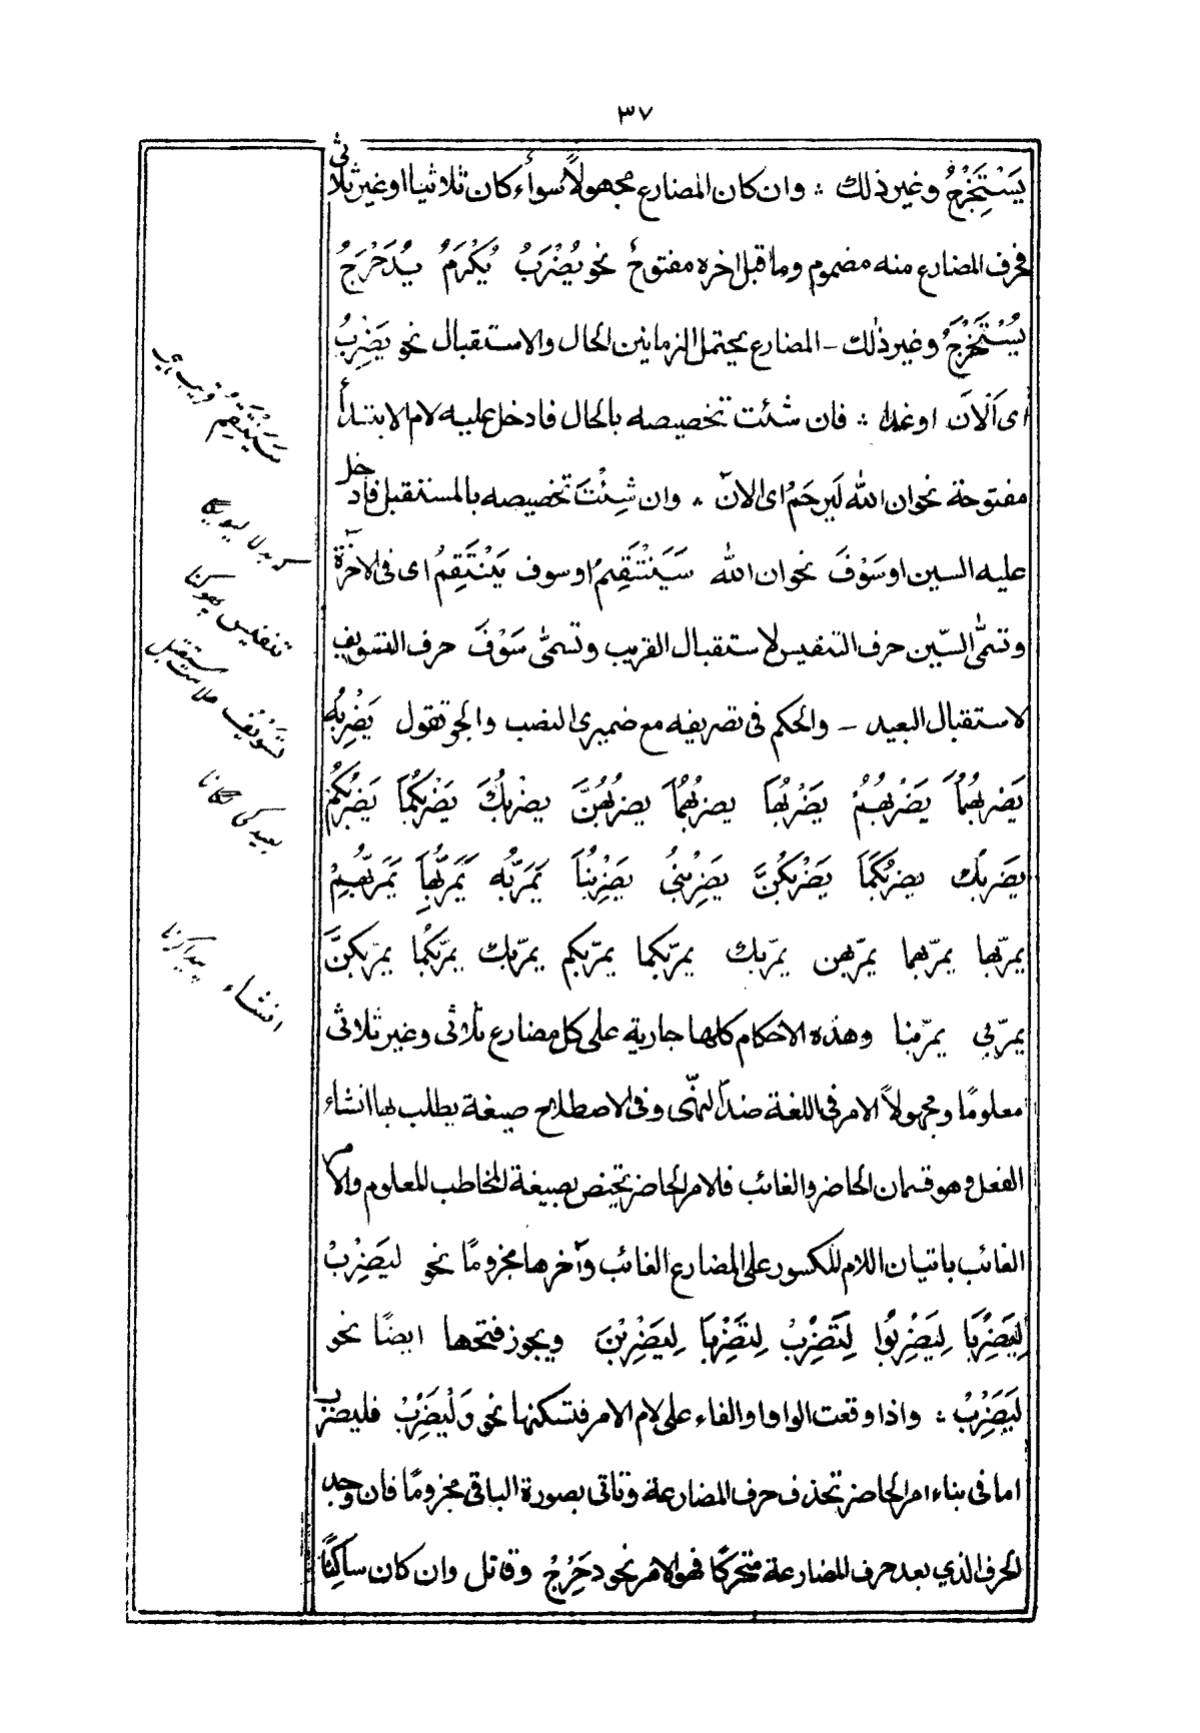 ٣٧
يَسْتَخْرِجُ وغير ذلك ؞ وان كان المضارع مجهولاً سوأء كان ثلاثيا او غير ثلاثى
فحرف المضارع منه مضموم وما قبل اخره مفتوحٌ نحو يُضْرَبُ يُكْرَمُ يُدَحْرَجُ
يُسْتَخْرَجُ وغير ذٰلك – المضارع يحتمل الزمانين الحال والاستقبال نحو يَضْرِبُ
اى اَلْاٰنَ او غدا ؞ فان شئت تخصيصه بالحال فادخل عليه لام الابتدأ
مفتوحة نحو ان الله لَيَرحَمُ اى الاٰن ؞ وان شِئْتَ تخصيصه بالمستقبل فادخل
عليه السين او سَوْفَ نحو ان الله سَيَنْتَقِمُ او سوف يَنْتَقِمُ اى فى الاٰخرة
وتسمّى السّين حرف التنفيس لاستقبال القريب وتسمّى سَوْفَ حرف التسويف
لاستقبال البعيد – والحكم فى تصريفه مع ضميرى النصب والجر تقول يَضْرِبُهُ
يَضْرِبُهُمَا يَضْرِبُهُمْ يَضْرِبُهَا يضربُهُمَا يضربُهُنَّ يضْرِبُكَ يَضْرِبُكُمَا يَضْرِبُكُمْ
يَضْرِبُكِ يضربُكُمَا يَضْرِبُكُنَّ يَضْرِبُنِىْ يَضْرِبُنَا يَمُرُّبِهٖ يَمُرُّبِهِمَا يَمُرُّبِهِمْ
يمرّبها يمرّبهما يمرّبهن يمرّبك يمرّبكما يمرّبكم يمرّبك يمرّبكُما يمرّبكنَّ
يمرّبي يمرّبنا وهذه الاحكام كلها جارية على كل مضارع ثلاثى وغير ثلاثى
معلومًا ومجهولاً الامر فى اللغة ضد النهى وفى الاصطلاح صيغة يطلب بها انشاء
الفعل وهو قسمان الحاضر والغائب فلامر الحاضر يختص بصيغة المخاطب المعلوم والامر
الغائب باتيان اللام المكسور على المضارع الغائب وآخرها مجزومًا نحو ليَضْرِبْ
لِيَضْرِبَا لِيَضْرِبُوا لِتَضْرِبْ لِتَضْرِبَا لِيَضْرِبْنَ ويجوز فتحها ايضًا نحو
لَيَضْرِبْ ؞ واذا وقعت الواو او الفاء على لام الامر فتسكنها نحو وَلْيَضْرِبْ فليضرب
اما فى بناء امر الحاضر تحذف حرف المضارعة وتاتى بصورة الباقى مجزومًا فان وجد
الحرف الذي بعد حرف المضارعة متحركًا فهو الامر نحو دحرِجْ وقاتل وان كان ساكنًا
سَيَنْتَقِمُ قريب ہے
كہ بدلا ليويگا
تنفيس پھونكنا
تَسْوِيْف علامت مستقبل
بعيد كى لگانا
انشاء پيدا كرنا